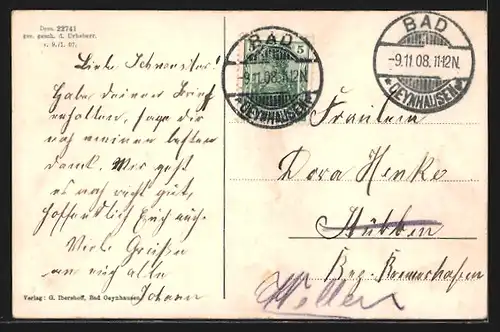 Dess. 22741
ges. gesch. d. Urheberr.
v. 9./1. 07.
Liebe Schwester!
Habe deinen Brief
erhalten, sage dir
noch meinen besten
dank. Mir geht
es noch recht gut,
hoffendlich Euch auch.
Viele Grüßen
an euch alle
Johann
Verlag: G. Ibershoff, Bad Oeynhausen
5
BAD
-9.11.08.11-12N.
*OEYNHAUSEN*
BAD
-9.11.08.11-12N.
*OEYNHAUSEN*
Fräulein
Dora Henke
Stubben
Bez. Bremerhafen
Wellen